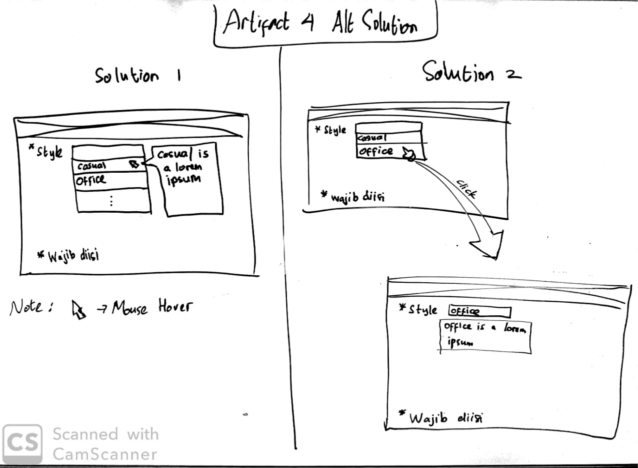 Artifact 4 Alt Solution
Solution 1
*Style
Casual
Office
Casual is
a lorem
ipsum
* Wajib diisi
Note: → Mouse Hover
Solution 2
*Style
Casual
Office
click
* Wajib diisi
*Style
Office
Office is a lorem
ipsum
* Wajib diisi
CS Scanned with
CamScanner